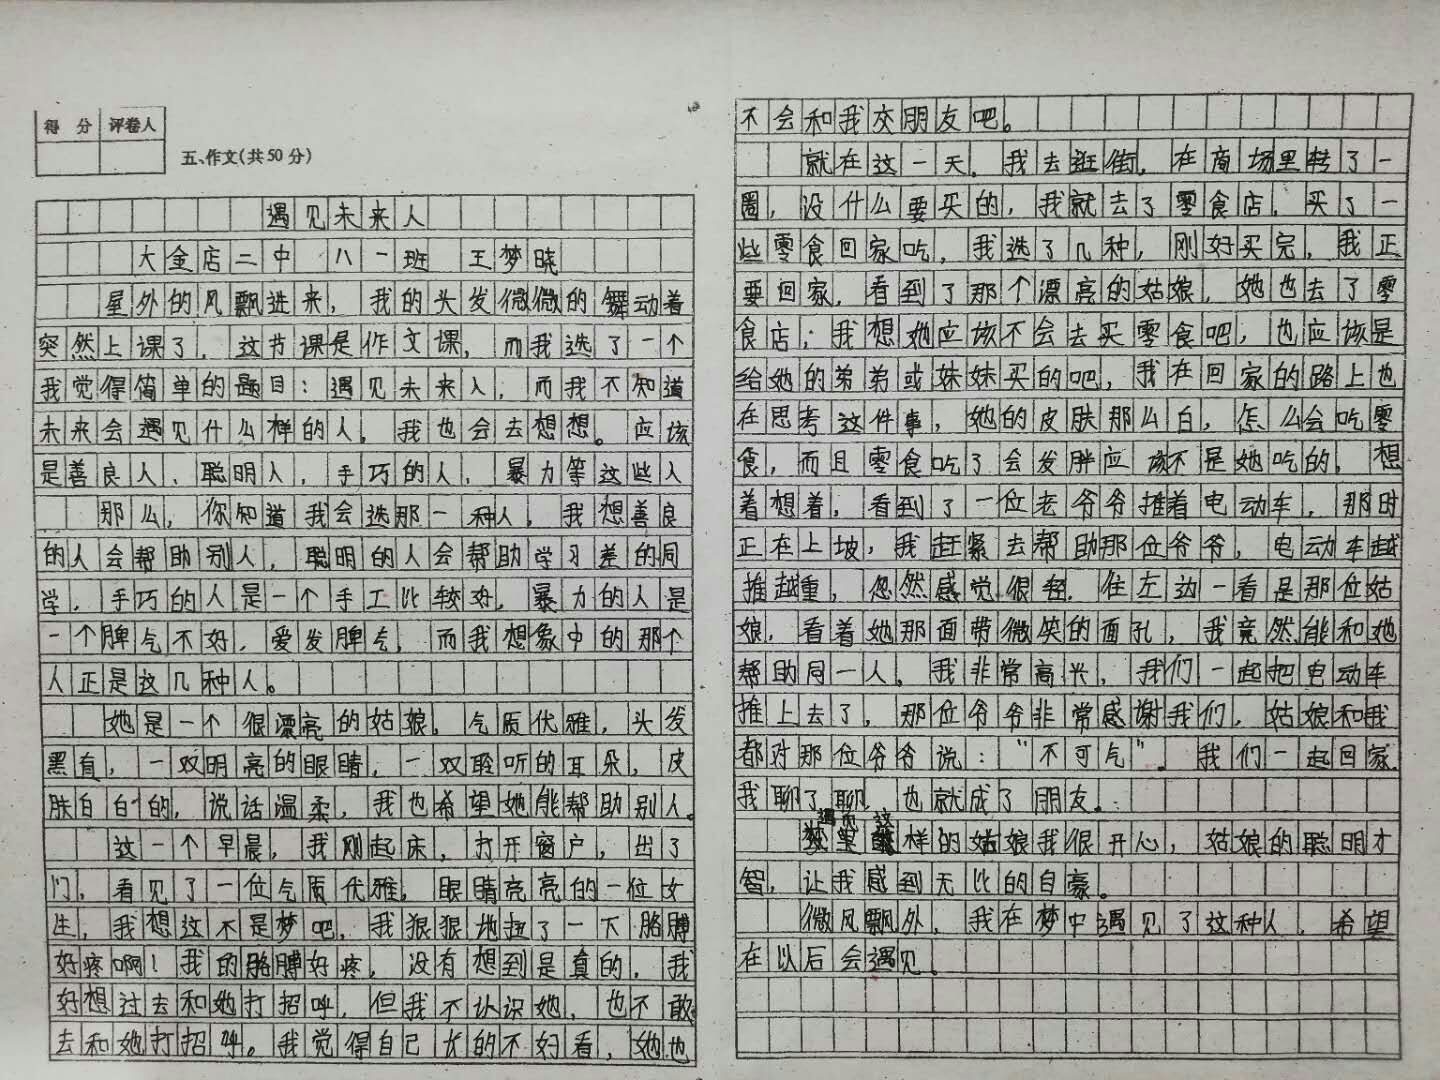 得 分 评卷人
五、作文(共50分)
遇见未来人
大金店二中 八一班 王梦晓
星外的风飘进来，我的头发微微的舞动着
突然上课了，这节课是作文课，而我选了一个
我觉得简单的题目：遇见未来人，而我不知道
未来会遇见什么样的人，我也会去想想。应该
是善良人、聪明人，手巧的人，暴力等这些人
那么，你知道我会选那一种人，我想善良
的人会帮助别人，聪明的人会帮助学习差的同
学，手巧的人是一个手工比较好，暴力的人是
一个脾气不好，爱发脾气，而我想象中的那个
人正是这几种人。
她是一个很漂亮的姑娘，气质优雅，头发
黑直，一双明亮的眼睛，一双聆听的耳朵，皮
肤白白的，说话温柔，我也希望她能帮助别人。
这一个早晨，我刚起床，打开窗户，出了
门，看见了一位气质优雅，眼睛亮亮的一位女
生，我想这不是梦吧，我狠狠地扭了一下胳膊
好疼啊！我的胳膊好疼，没有想到是真的，我
好想过去和她打招呼，但我不认识她，也不敢
去和她打招呼。我觉得自己长的不好看，她也
不会和我交朋友吧。
就在这一天，我去逛街，在商场里转了一
圈，没什么要买的，我就去了零食店，买了一
些零食回家吃，我选了几种，刚好买完，我正
要回家，看到了那个漂亮的姑娘，她也去了零
食店；我想她应该不会去买零食吧，也应该是
给她的弟弟或妹妹买的吧，我在回家的路上也
在思考这件事，她的皮肤那么白，怎么会吃零
食，而且零食吃了会发胖应该不是她吃的，想
着想着，看到了一位老爷爷推着电动车，那时
正在上坡，我赶紧去帮助那位爷爷，电动车越
推越重，忽然感觉很轻，往左边一看是那位姑
娘，看着她那面带微笑的面孔，我竟然能和她
帮助同一人。我非常高兴，我们一起把电动车
推上去了，那位爷爷非常感谢我们，姑娘和我
都对那位爷爷说：“不可气”。我们一起回家
我聊了聊，也就成了朋友。
遇而这样的姑娘我很开心，姑娘的聪明才
智，让我感到无比的自豪。
微风飘外，我在梦中遇见了这种人，希望
在以后会遇见。